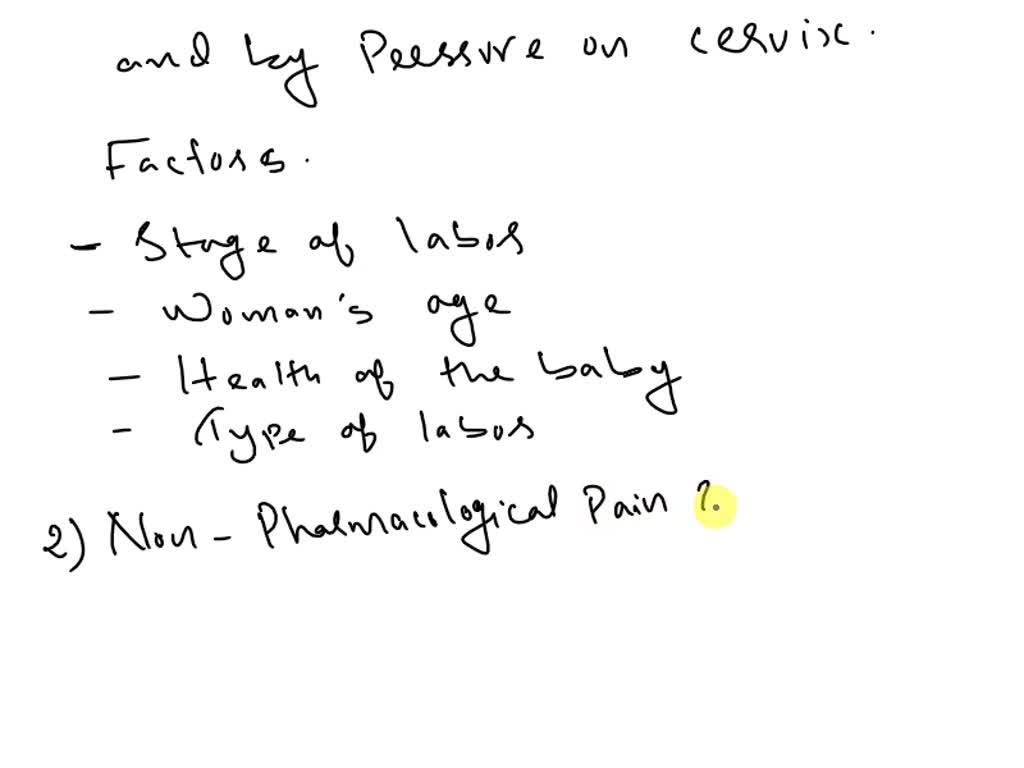 and by Pressure on cervix.
Factors.
- Stage of labor
- Woman's age
- Health of the baby
- Type of labor
2) Non - Pharmacological Pain